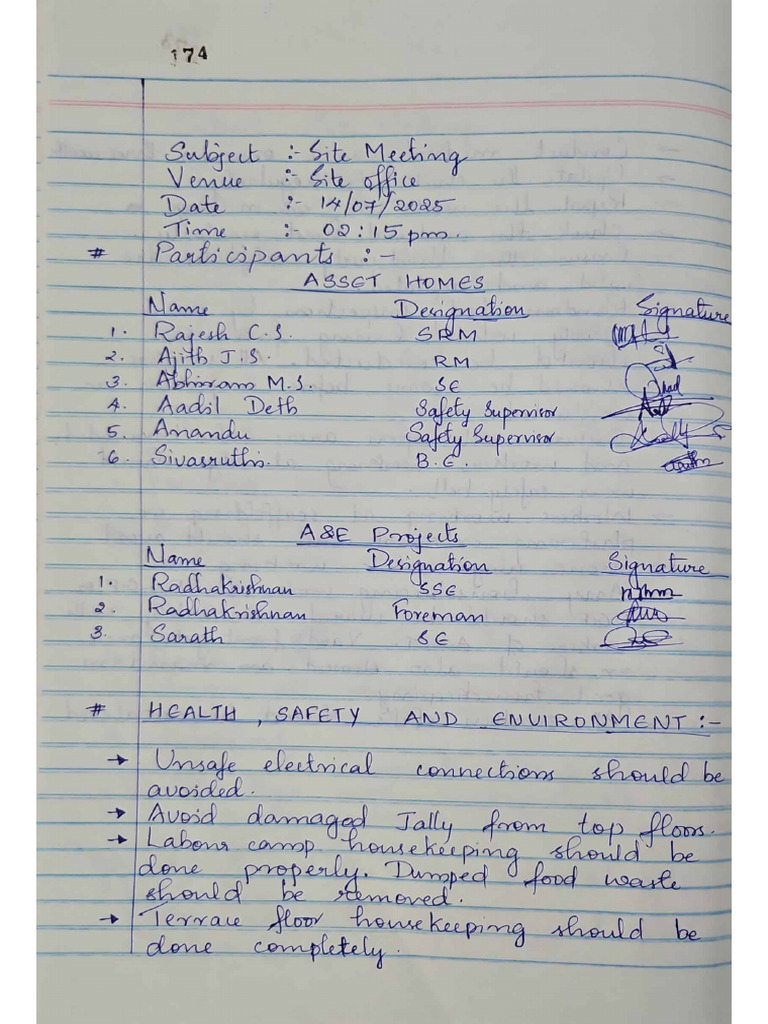 174
Subject :- Site Meeting
Venue :- Site office
Date :- 14/07/2025
Time :- 02:15 pm.
# Participants :-
ASSET HOMES
Name Designation Signature
1. Rajesh C.S. SRM
2. Ajith J.S. RM
3. Abhiram M.S. SE
4. Aadil Deth Safety Supervisor
5. Anandu Safety Supervisor
6. Sivasruthi. B.E.
A&E Projects
Name Designation Signature
1. Radhakrishnan SSE
2. Radhakrishnan Foreman
3. Sarath SE
# HEALTH, SAFETY AND ENVIRONMENT :-
→ Unsafe electrical connections should be
avoided.
→ Avoid damaged Jally from top floors.
→ Labour camp housekeeping should be
done properly. Dumped food waste
should be removed.
→ Terrace floor housekeeping should be
done completely.